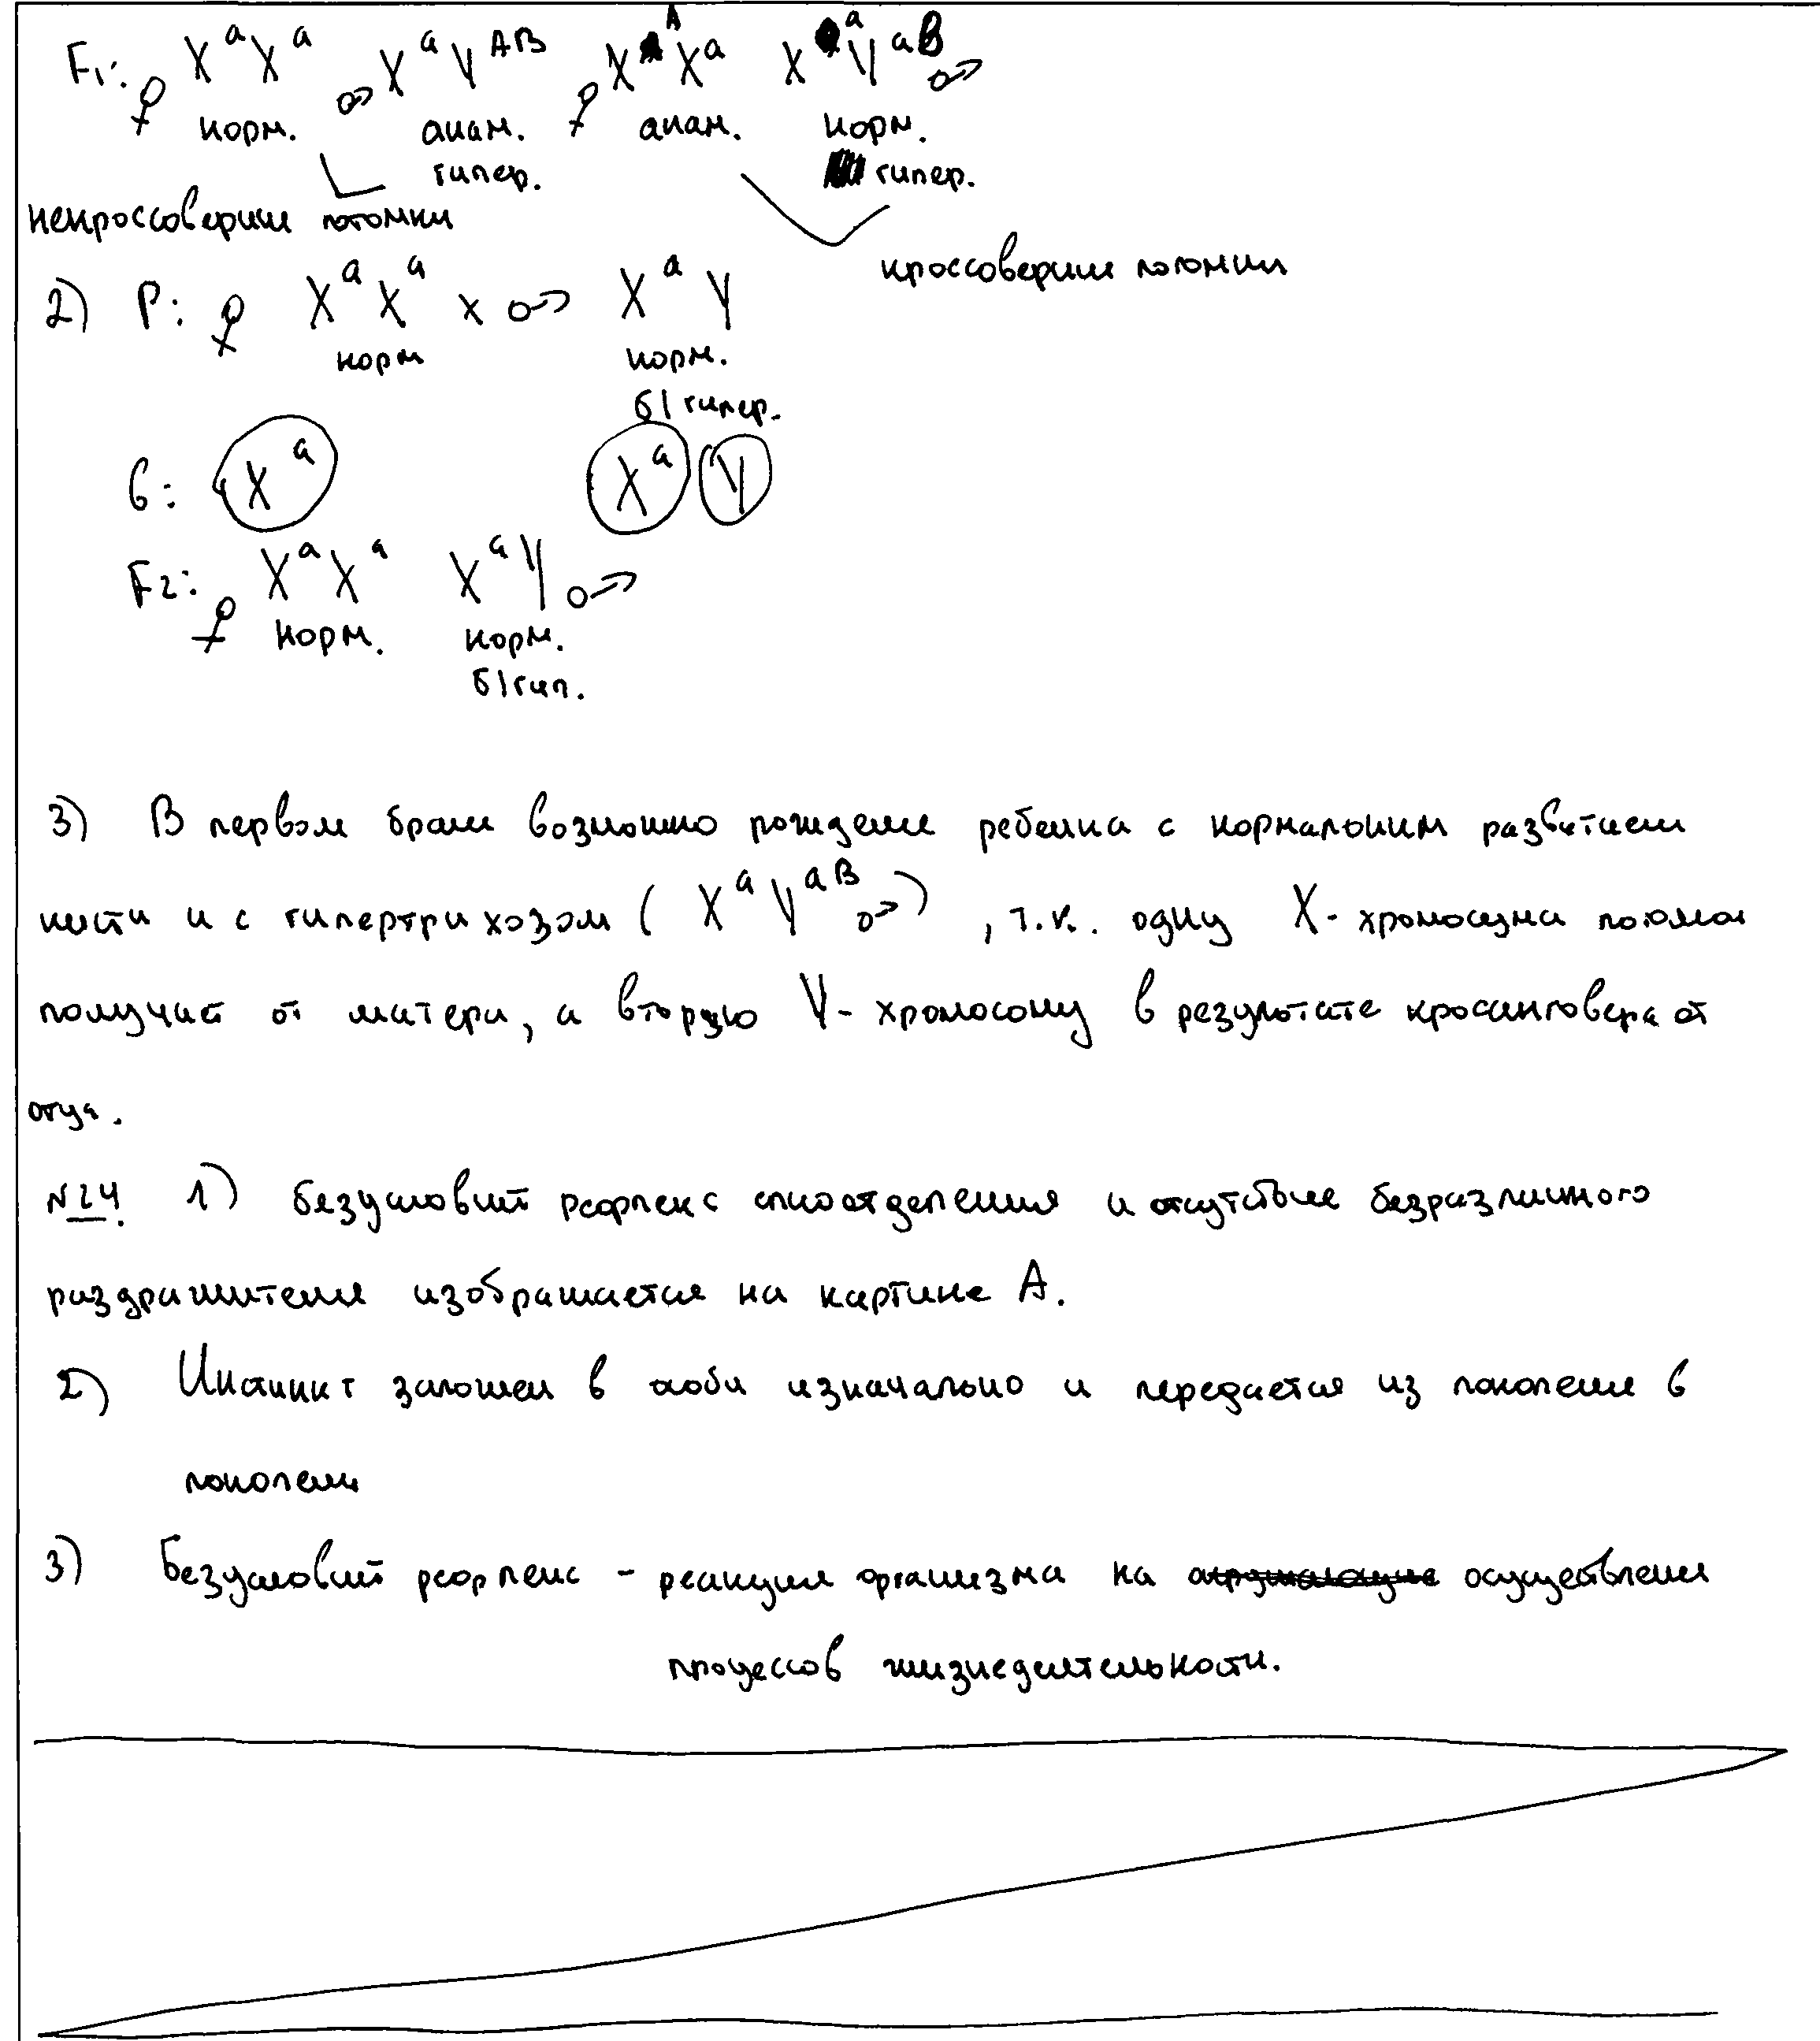 F₁: ♀ XᵃXᵃ ♂ XᵃYᴬᴮ ♀ XᴬXᵃ XᵃYᵃᴮ ♂
норм. аном. аном. норм.
гипер. гипер.
некроссоверные потомки
кроссоверные потомки
2) P: ♀ XᵃXᵃ x ♂ XᵃY
норм норм.
б/гипер.
G: Xᵃ Xᵃ Y
F₂: ♀ XᵃXᵃ XᵃY ♂
норм. норм.
б/гип.
3) В первом браке возможно рождение ребенка с нормальным развитием
кисти и с гипертрихозом (XᵃYᵃᴮ ♂), т.к. одну X-хромосома потомок
получает от матери, а вторую Y-хромосому в результате кросинговера от
отца.
№24. 1) безусловный рефлекс слюоотделения и отсутствие безразличного
раздражителя изображается на картине А.
2) Инстинкт заложен в особи изначально и передается из поколение в
поколение
3) Безусловный рефлекс - реакция организма на осуществление
процессов жизнедеятельности.